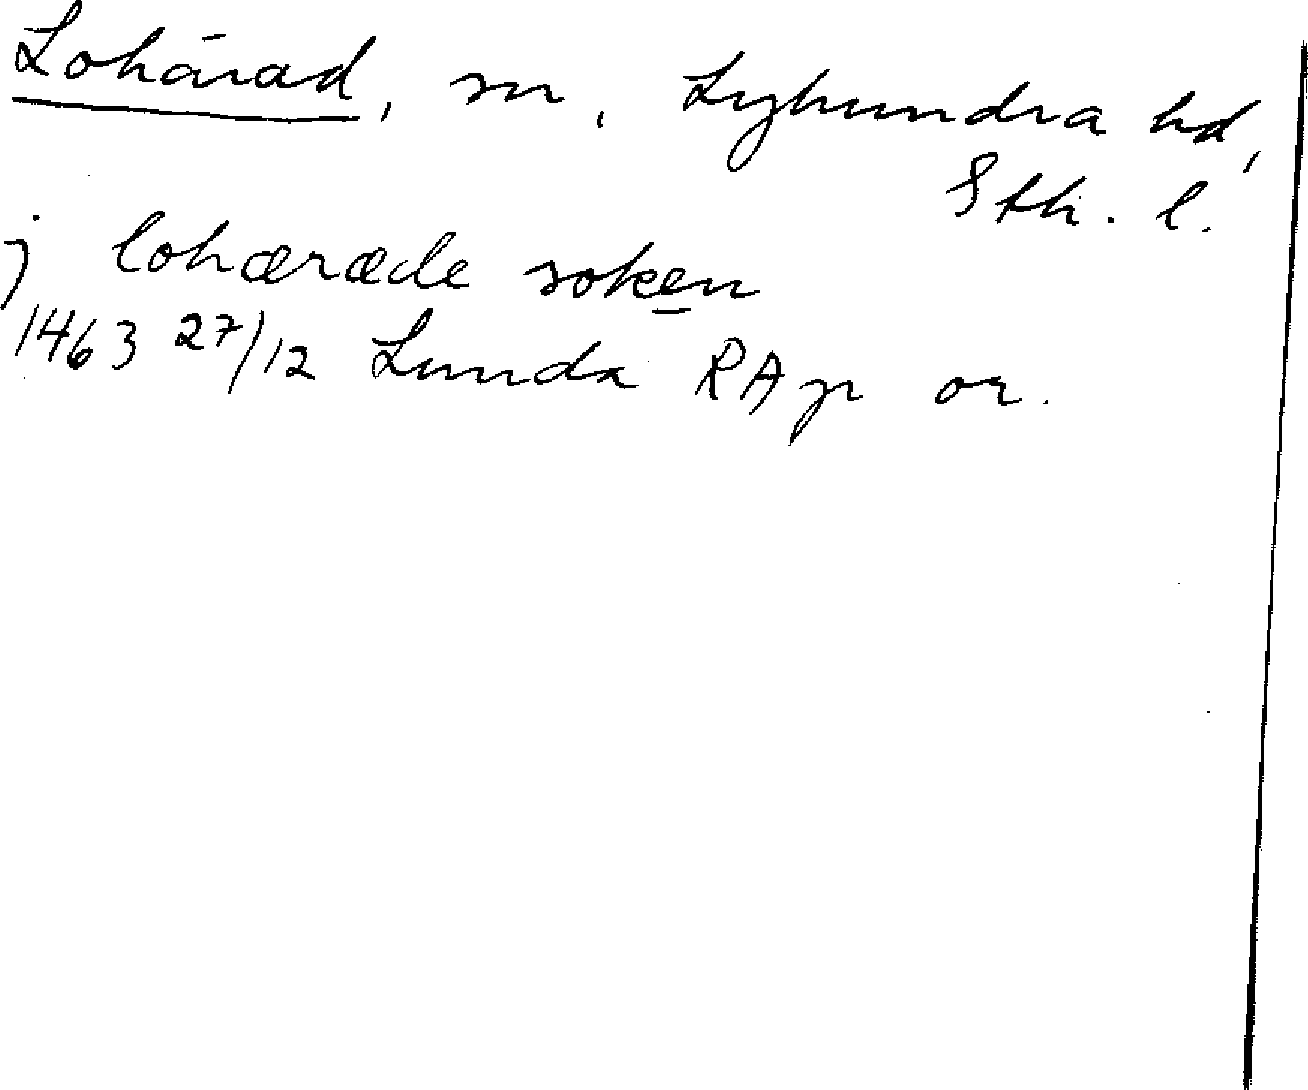 Lohärad, sn, Lyhundra hd,
Sth. l.
j lohæræde soken
1463 27/12 Lunda RAp or.